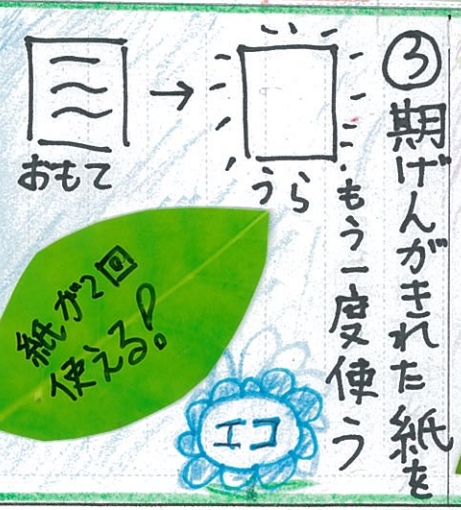 ③期げんがきれた紙を
もう一度使う
おもて
→
うら
紙が2回
使える!
エコ